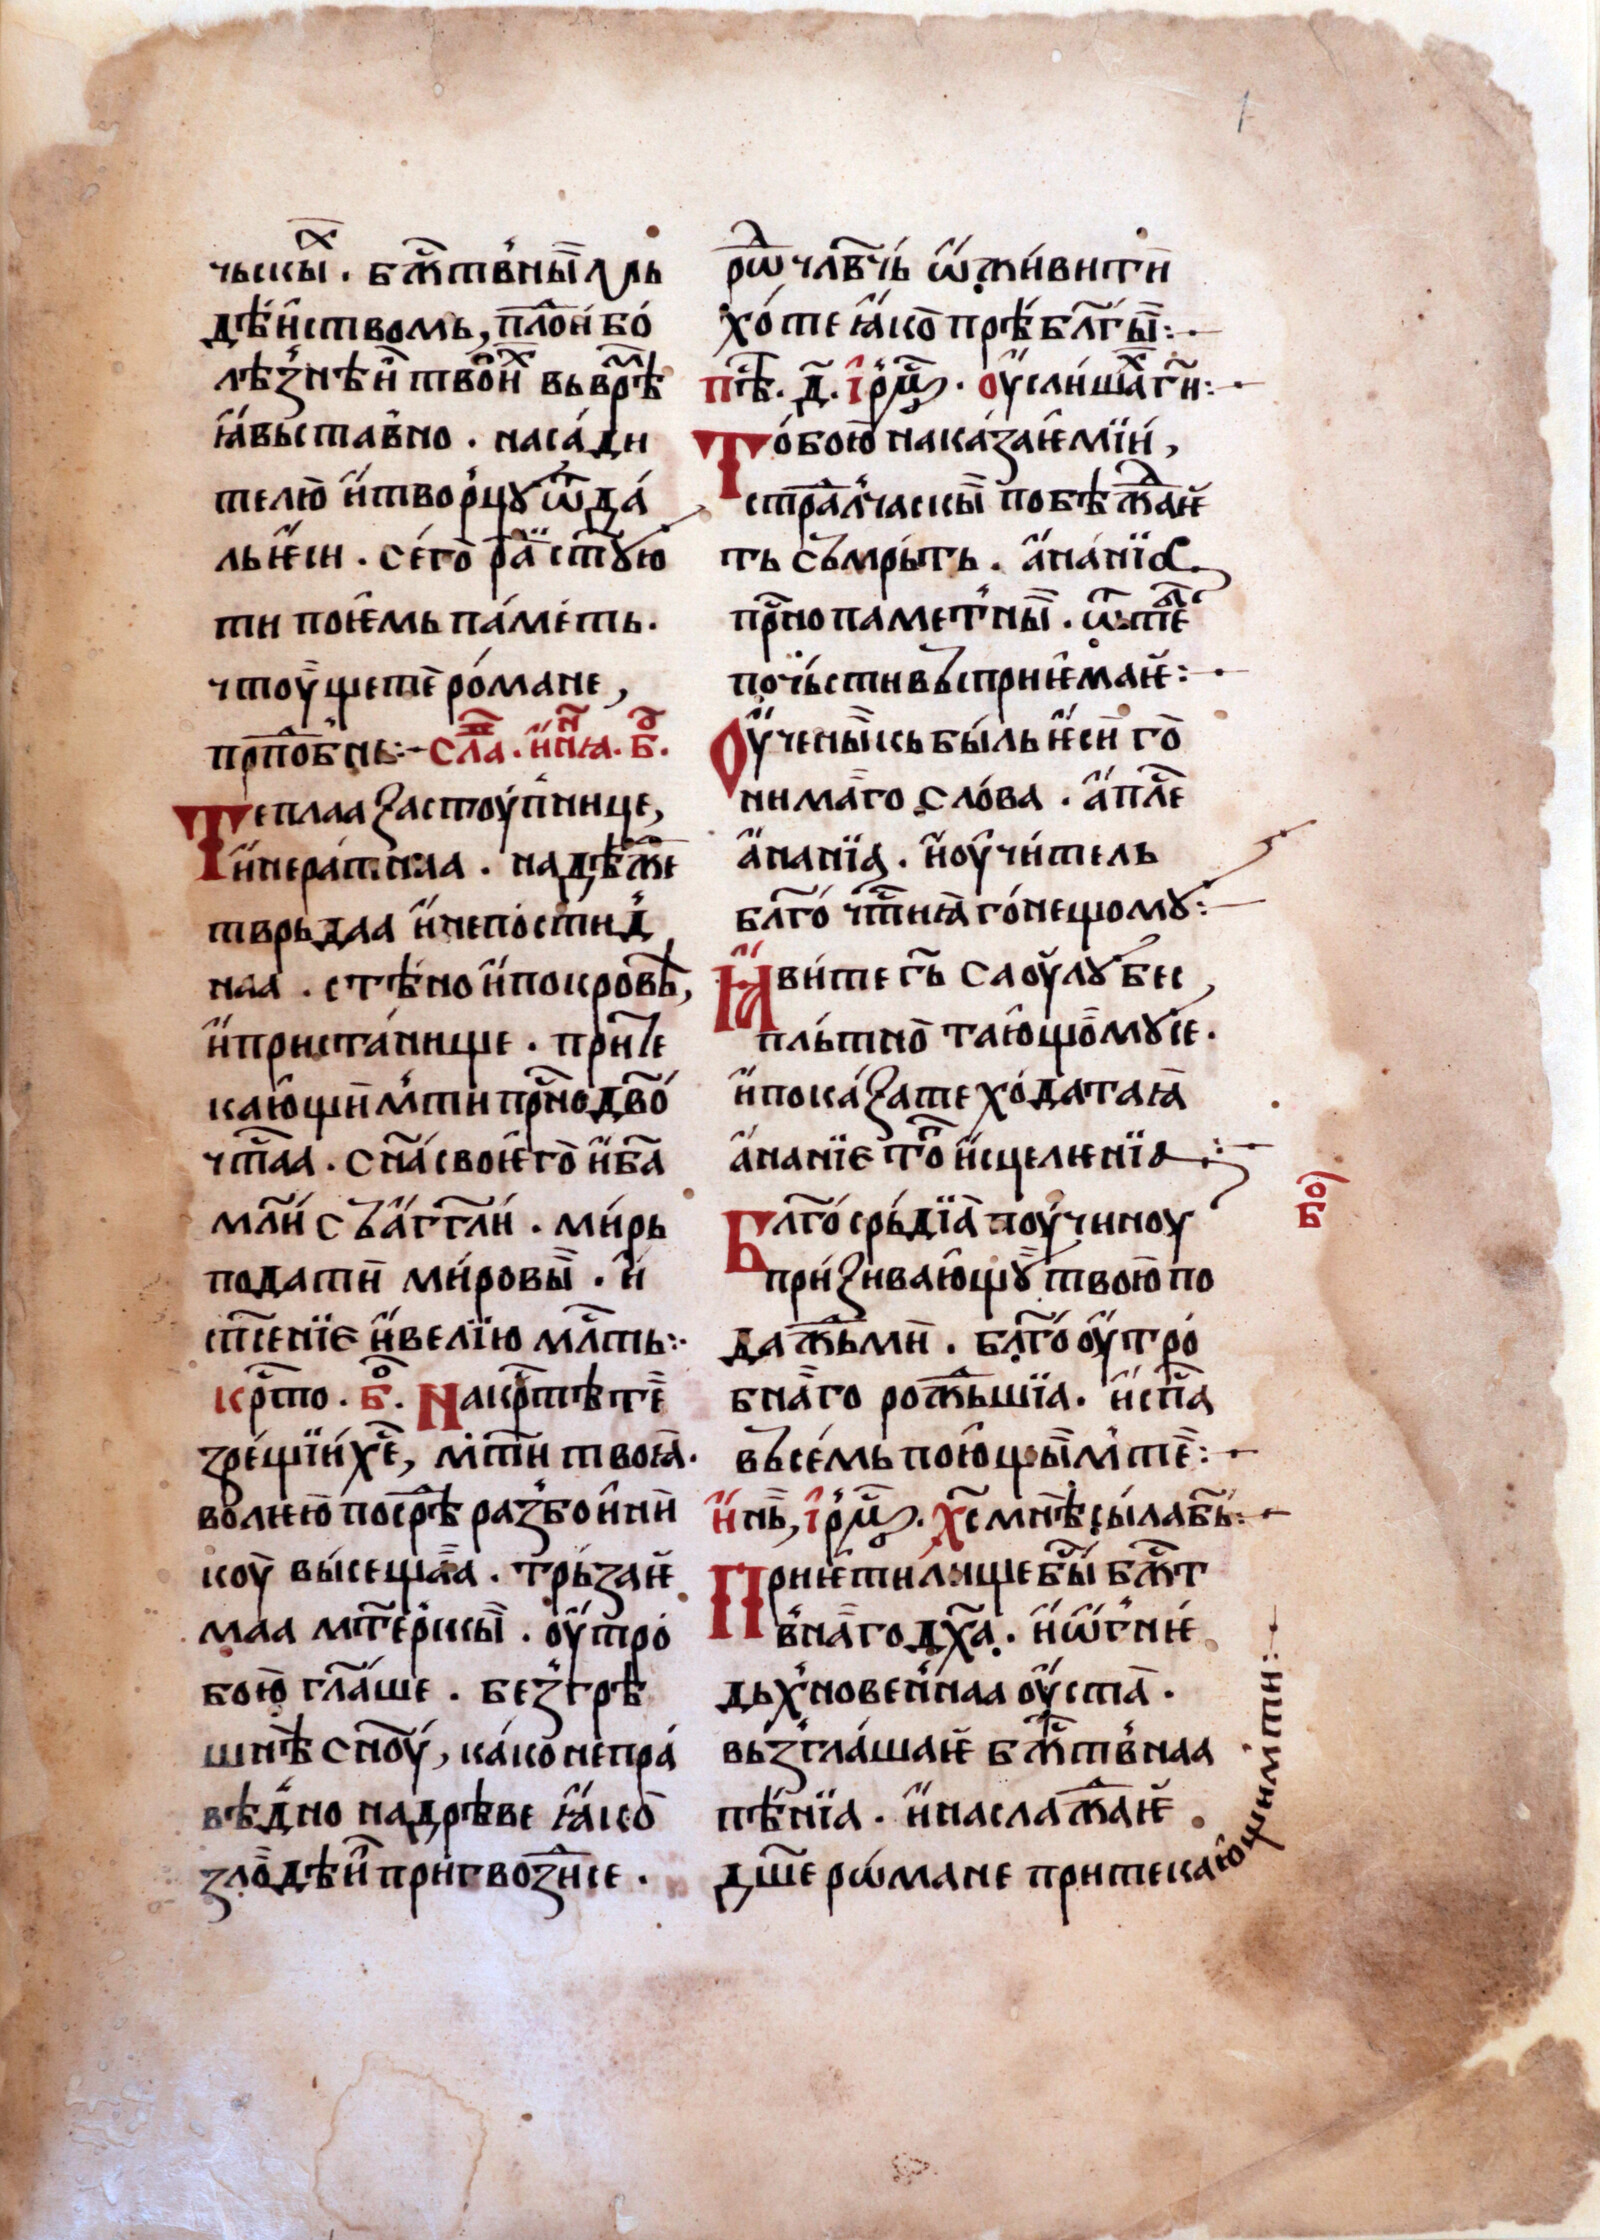 чьскы̏х . бж҃твны̏ль
дѣ́иствомь, пло́и бо́
лѣ́знѣи твои́х вь врѣ́м
ꙗ҆вьставно . насади
телю̀ и҆творцꙋ ѿда́
льѥси . сего̀ ра̑ї ст҃ꙋю
ти поѥ̑мь па́меть .
чтоу҆щете ро́мане ,
прпⷣобне :~ сла̑ . и҆нꙗ . б̑ .
Теплаа застоу́пнице ,
и҆нера́тнаа . надѣ́же
тврьдаа и҆непости́д
наа . стѣ́но и҆покровѣ ,
и҆приста́нище . прите
каю̑щи́мти прⷭ҇но дво̑
чт҃аа . сн҃а своѥго̀ и҆ба҃
мл҃и сьа҆гг҃ли . ми́рь
подати̏ ми́ровы̏ . и҆
сп҃сенїе и҆велїю млⷭ҇ть :·
крⷭ҇то . б̑ . На крⷭ҇тѣ те̏
зре́щїи хе҃ , мт҃и твоꙗ̀ .
волею̀ посрѣ̑ разбо́ини
коу̏ вы́сеща̏а . трьзаѥ
маа мт҃ерскы̏ . оу҆тро́
бою̀ гл҃а́ше . безгрѣ
шнѣ сн҃оу́ , ка́ко непра́
вѣ́дно надрѣве ꙗ҆ко̀
зло̏дѣи пригвозⷣисе .
рѡⷣ чл҃вчь ѡ҆живити
хо́те ꙗ҆ко̀ прѣ́бл҃гы̏ :~
пѣⷭ҇ . д҃ . і҆рмⷭ҇ . оу҆слишаⷯ г҃и :~
То́бою̀ нака́заѥмїи ,
стра́лчаскы̏ побѣжⷣаѥ
ть сьмрьть . а҆на́нїа
прⷭ҇но паметны̏ . ѿтлѣ
почьсти вьсприѥмаѥ :~
Оу҆чены̏кь быль ѥси го̀
нима̏го сло́ва . а҆п҃ле
а҆нанїа . и҆оу҆чи́тель
бл҃го́ чтⷭ҇иꙗ го́нещомꙋ :~
Ꙗ҆ви́те гь҃ саоу́лꙋ бес ,
пльтно̀ таю̑що̏мꙋсе .
и҆пока́зате хо́датаꙗ
а҆нанїе то̑ и҆сцелѥнїа :~
Бл҃го́ срьдїа̀ поу́чиноу
при́зиваю̑щꙋ̏ твою̀ по
дажⷣьми̏ . бл҃го́ оу҆тро́
бна̏го рожⷣьшїа . и҆сп҃са
вьсе́мь пою̑щы̏м те̏ :~
и҆нь , і҆рмⷭ҇ . хе҃ мнѣ сы́ла бь :~
Приѥ́тилище бы̑ бжⷭ҇т
вна̏го дх҃а . и҆ѡ҆гнѥ
дьхновеннаа оу҆ста̀ .
вьзгла́шаѥ бжⷭ҇твнаа
пѣ́нїа . и҆наслажⷣаѥ
дш҃е рѡ́мане притекаю̑щимти :~
бо̑
1